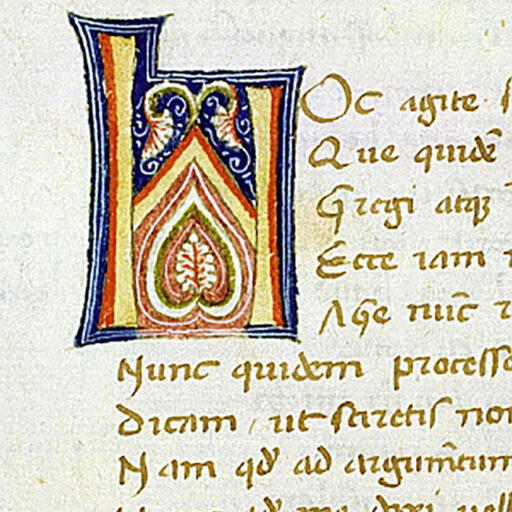 HOC agite
Que quidē
Gregi atqꝫ
Ecce iam
Age nūc
Nunc quidem processe
Dicam, ut sciretis non
Nam qđ ad argumētum